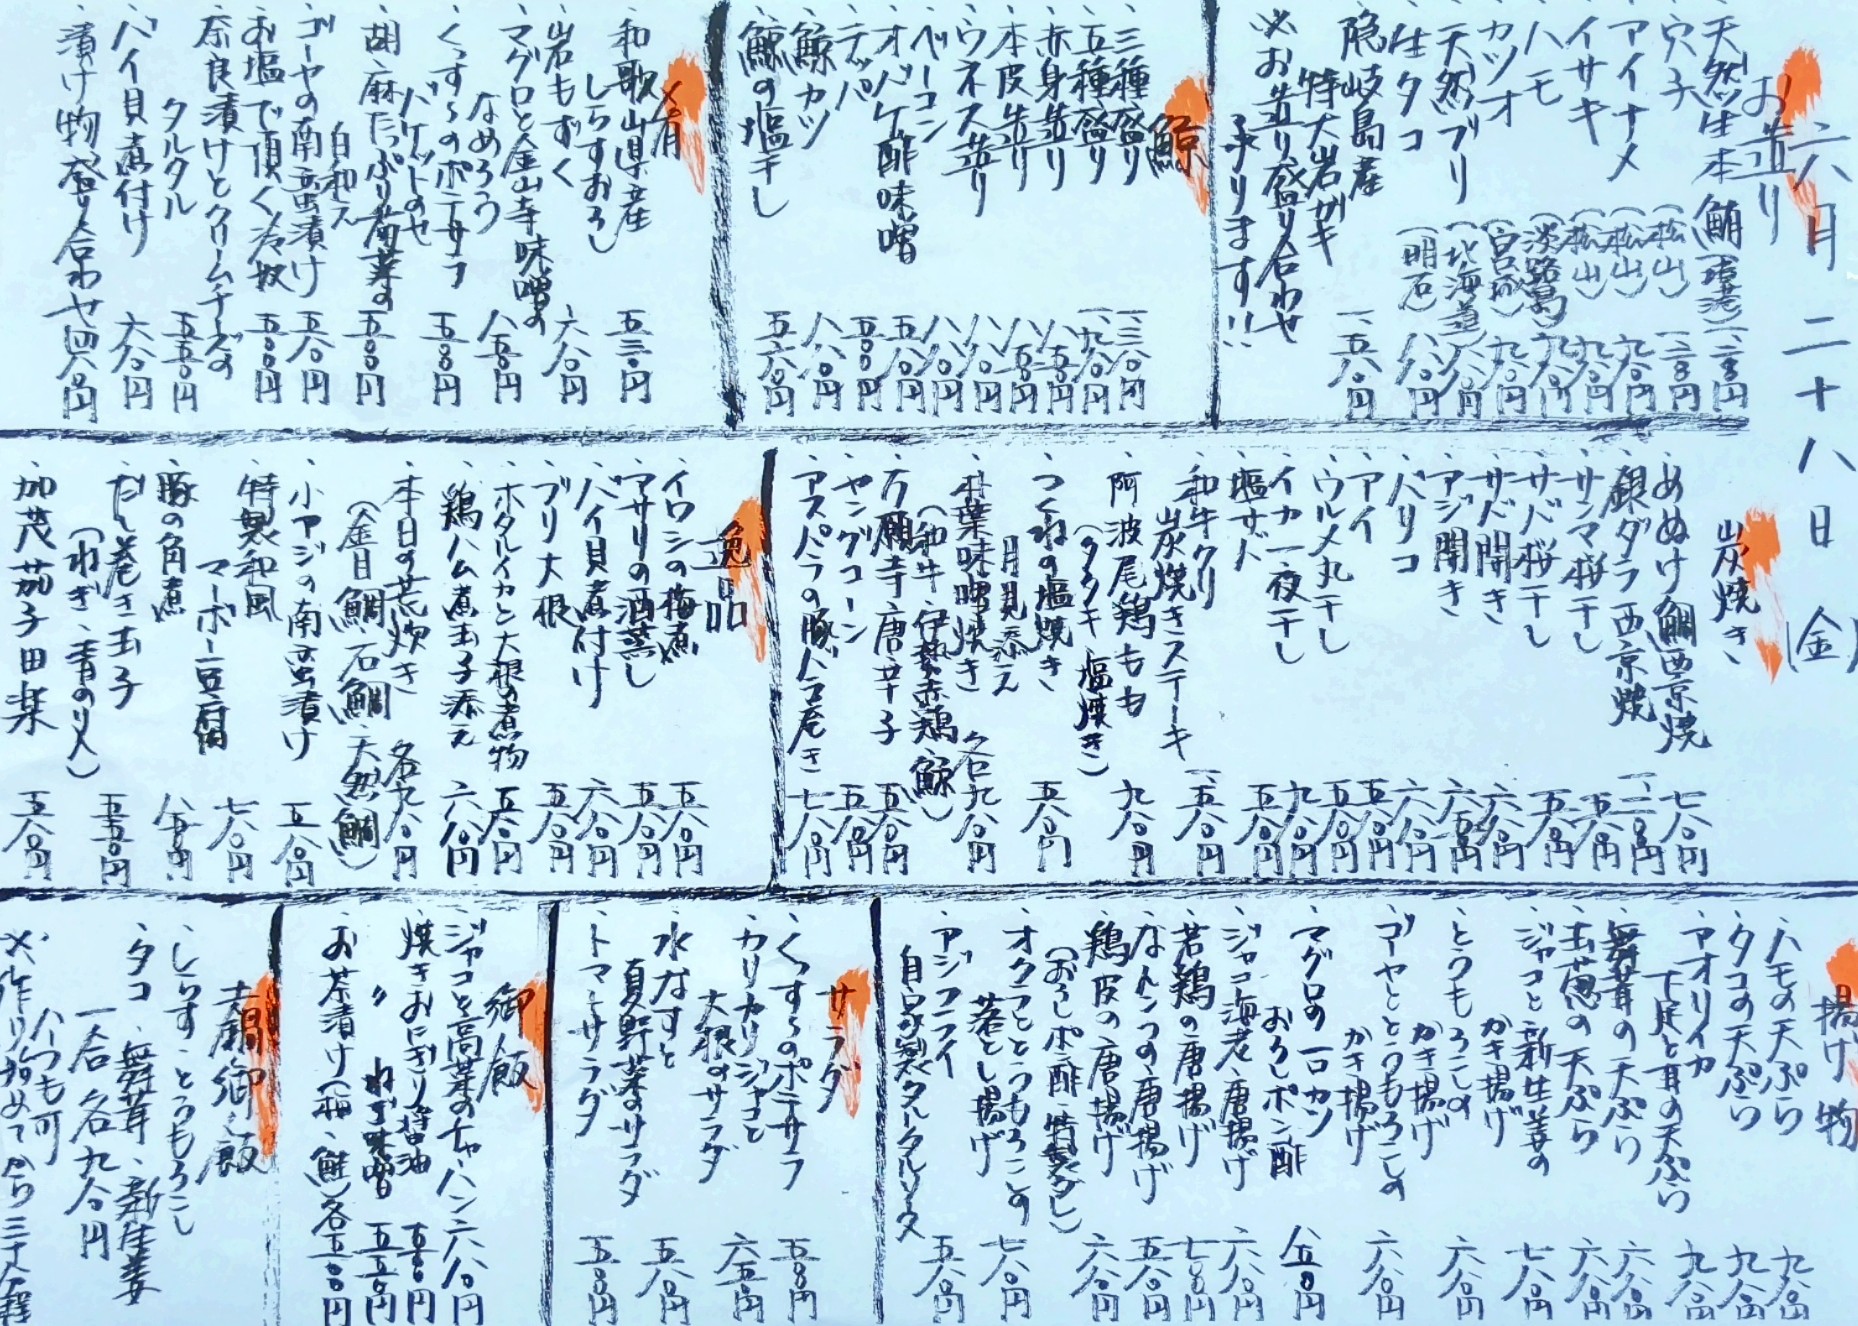 六月二十八日(金)
お造り
、天然生本鮪
、穴子(松山)
、アイナメ(松山)九八〇円
、イサキ(松山)九八〇円
、ハモ(淡路島)九八〇円
、カツオ(宮城)九八〇円
、天然ブリ(北海道)八八〇円
、生タコ(明石)八八〇円
、隠岐島産
特大岩ガキ一、五八〇円
※お造り盛り合わせ
承ります!!
鯨
、三種盛り一、三八〇円
、五種盛り一、九八〇円
、赤身造り八五〇円
、本皮造り八五〇円
、ウネス造り八八〇円
、ベーコン八八〇円
、オバケ酢味噌五八〇円
、テッパ五〇〇円
、鯨カツ八八〇円
、鯨の塩干し五六〇円
〆肴
、和歌山県産
しらすおろし五三〇円
、岩もずく六八〇円
、マグロと金山寺味噌の
なめろう八五〇円
、くずしのポテサラ
バケットのせ五〇〇円
、胡麻たっぷり荀菜の
白和え五〇〇円
、ゴーヤの南蛮漬け五八〇円
、お塩で頂く冷奴五〇〇円
、奈良漬けとクリームチーズの
タルタル五五〇円
、バイ貝煮付け六八〇円
、漬け物盛り合わせ四八〇円
炭焼き
、めぬけ鯛西京焼七八〇円
、銀ダラ西京焼一、二八〇円
、サンマ桜干し五八〇円
、サバ桜干し五八〇円
、サバ開き六八〇円
、アジ開き六五〇円
、バリコ六八〇円
、アイ五八〇円
、ウルメ丸干し五五〇円
、イカ一夜干し九八〇円
、塩サバ五八〇円
、和牛クリ
炭焼きステーキ一、五八〇円
、阿波尾鶏もも
(タタキ、塩焼き)九八〇円
、つくねの塩焼き
月見添え五八〇円
、朴葉味噌焼き各九八〇円
(和牛、伊勢赤鶏、鯨)
、万願寺唐辛子五八〇円
、ヤングコーン五八〇円
、アスパラの豚バラ巻き七八〇円
逸品
、イワシの梅煮五八〇円
、アサリの酒蒸し五八〇円
、バイ貝煮付け六八〇円
、ブリ大根五八〇円
、ホタルイカと大根の煮物五八〇円
、鶏ハム煮玉子添え六八〇円
、本日の荒炊き各九八〇円
(金目鯛、石鯛、天然鯛)
、小アジの南蛮漬け五八〇円
、特製和風
マーボー豆腐七八〇円
、豚の角煮八五〇円
、だし巻き玉子
(ねぎ、青のり入)五五〇円
、加茂茄子田楽五八〇円
揚げ物
、ハモの天ぷら九八〇円
、タコの天ぷら九八〇円
、アオリイカ
下足と耳の天ぷら九八〇円
、舞茸の天ぷら六八〇円
、玉葱の天ぷら六八〇円
、ジャコと新生姜の
かき揚げ七八〇円
、とうもろこしの
かき揚げ六八〇円
、ゴーヤととうもろこしの
かき揚げ六八〇円
、マグロの一口カツ
おろしポン酢八五〇円
、ジャコ海老唐揚げ六八〇円
、若鶏の唐揚げ七〇〇円
、なんこつの唐揚げ五八〇円
、鶏皮の唐揚げ六八〇円
(おろしポン酢、特製ダレ)
、オクラととうもろこしの
落とし揚げ七八〇円
、アジフライ五八〇円
自家製タルタルソース
サラダ
、くずしのポテサラ五〇〇円
、カリカリジャコと
大根のサラダ六五〇円
、水なすと
夏野菜のサラダ五八〇円
、トマトサラダ五〇〇円
御飯
、ジャコと高菜のチャーハン六八〇円
、焼きおにぎり醤油五〇〇円
〃 ねぎ味噌五五〇円
、お茶漬け(梅、鮭)各五〇〇円
土鍋御飯
、しらす、とうもろこし
、タコ、舞茸、新生姜
一合各九八〇円
ハーフも可
※作り始めてから三十分程